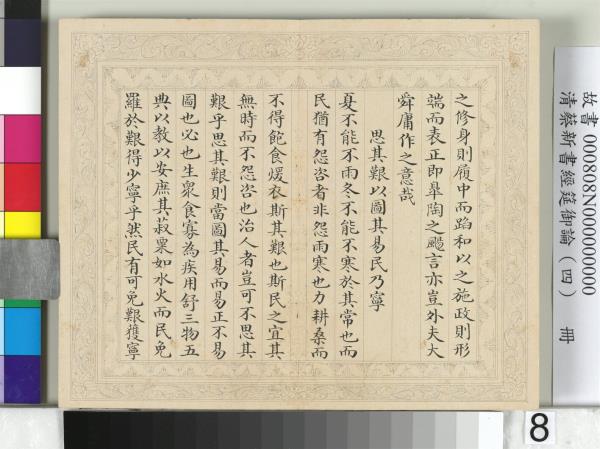 之修身則履中而蹈和以之施政則形
端而表正即臯陶之颺言亦豈外夫大
舜庸作之意哉
思其艱以圖其易民乃寧
夏不能不雨冬不能不寒於其常也而
民猶有怨咨者非怨雨寒也力耕桑而
不得飽食煖衣斯其艱也斯民之宜其
無時而不怨咨也治人者豈可不思其
艱乎思其艱則當圖其易而易正不易
圖也必也生衆食寡為疾用舒三物五
典以教以安庶其菽粟如水火而民免
罹於艱得少寧乎然民有可免艱獲寧
故書 000808N000000000
清蔡新書經筵御論（四） 冊
8